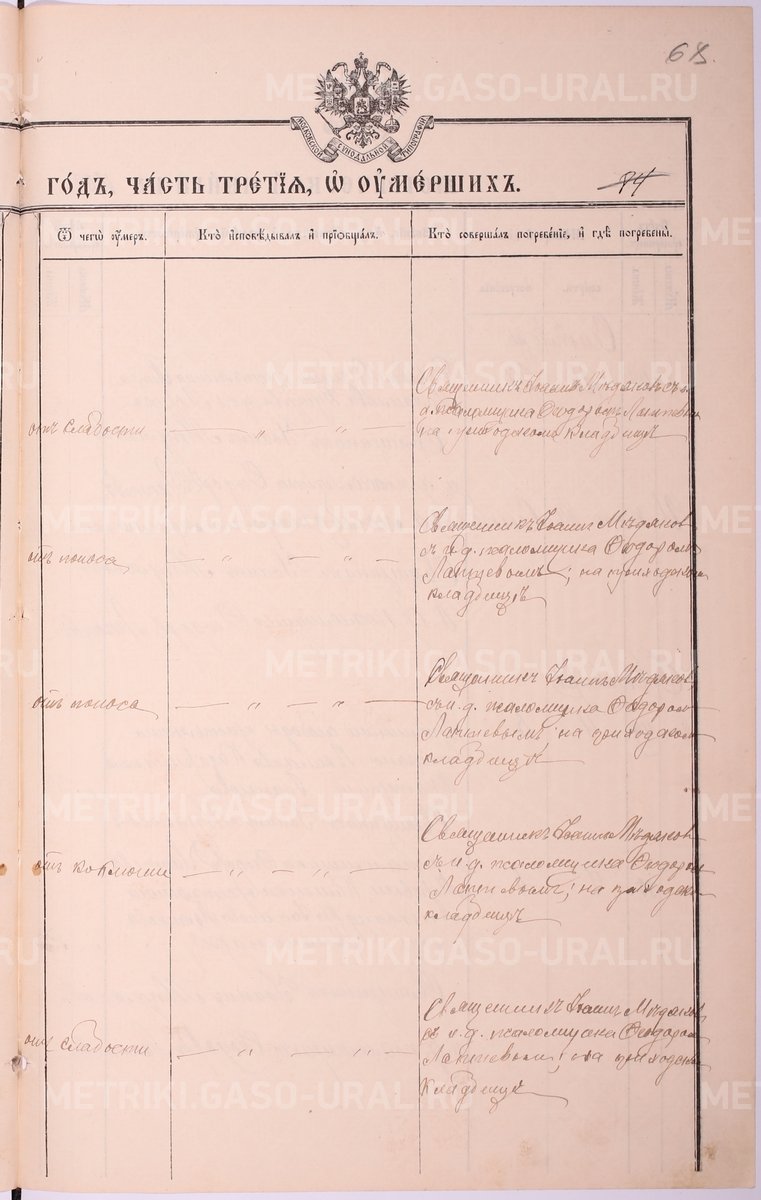 68.
МОСКОВСКОЙ СѴНОДАЛЬНОЙ ТИПОГРАФІИ
ГОДЪ, ЧАСТЬ ТРЕТІЯ, Ѡ ОУМЕРШИХЪ.
84
Ѿ чегѡ оумеръ.
Кто исповѣдывалъ и пріобщалъ.
Кто совершалъ погребеніе, и гдѣ погребены.
отъ слабости
— „ — „ —
Священникъ Іоаннъ Мѣдяковъ съ
псаломщика Ѳеодоромъ Лаптевым
на приходскомъ кладбищѣ
отъ поноса
— „ — „ —
Священникъ Іоаннъ Мѣдяков
съ и.д. псаломщика Ѳеодоромъ
Лаптевымъ; на приходском
кладбищѣ
отъ поноса
— „ — „ —
Священникъ Іоаннъ Мѣдяков
съ и.д. псаломщика Ѳеодором
Лаптевымъ; на приходском
кладбищѣ
отъ коклюша
— „ — „ —
Священникъ Іоаннъ Мѣдяков
съ и.д. псаломщика Ѳеодором
Лаптевымъ; на приходском
кладбищѣ
отъ слабости
— „ — „ —
Священникъ Іоаннъ Мѣдяков
съ и.д. псаломщика Ѳеодором
Лаптевымъ; на приходском
кладбищѣ
METRIKI.GASO-URAL.RU